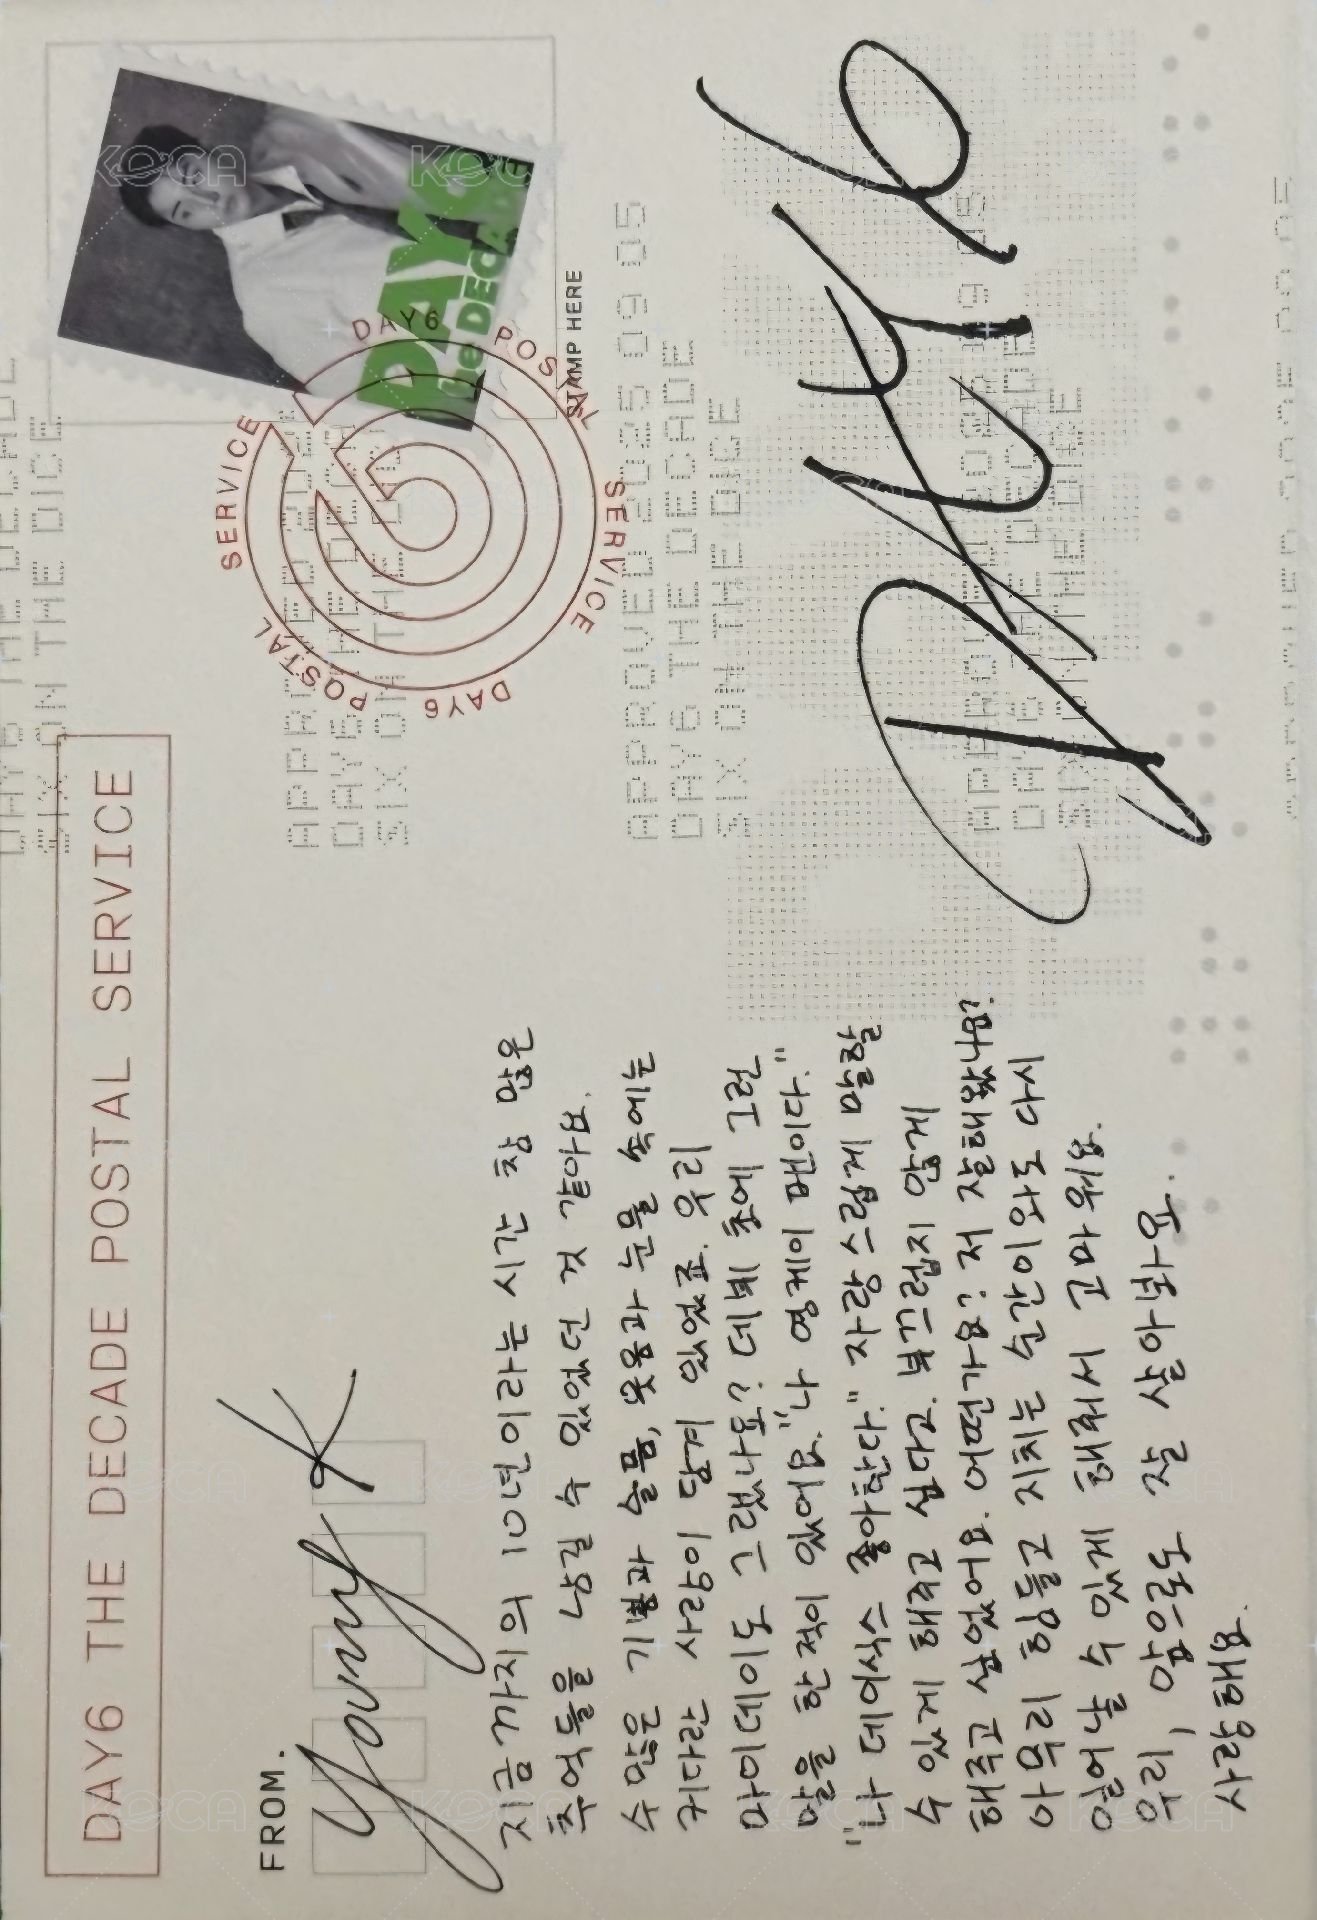 DAY6 THE DECADE POSTAL SERVICE
FROM.
Young K
지금까지의 10년이라는 시간 참 많은
추억들을 남길 수 있었던 것 같아요.
수많은 기쁨과 슬픔, 웃음과 눈물 속에는
커다란 사랑이 담겨 있었죠. 우리
마이데이도 그랬나요? 데뷔 초에 그런
말을 한 적이 있어요. "나 영케이 팬이다."
"나 데이식스 좋아한다." 자랑스럽게 말할
수 있게 해주고 싶다고. 부끄럽지 않게
해주고 싶었어요. 어떤가요? 저 잘 해왔나요?
아무리 힘들고 지치는 순간이 있어도 다시
일어날 수 있게 해줘서 고마워요.
우리, 앞으로도 잘 살아봐요.
사랑해요.
DAY6
STAMP HERE
DAY6 POSTAL SERVICE DAY6 POSTAL SERVICE
APPROVED 2025 09 05
DAY6 THE DECADE
SIX ON THE DICE
DAY6 THE DECADE
SIX ON THE DICE
KOCA
KOCA